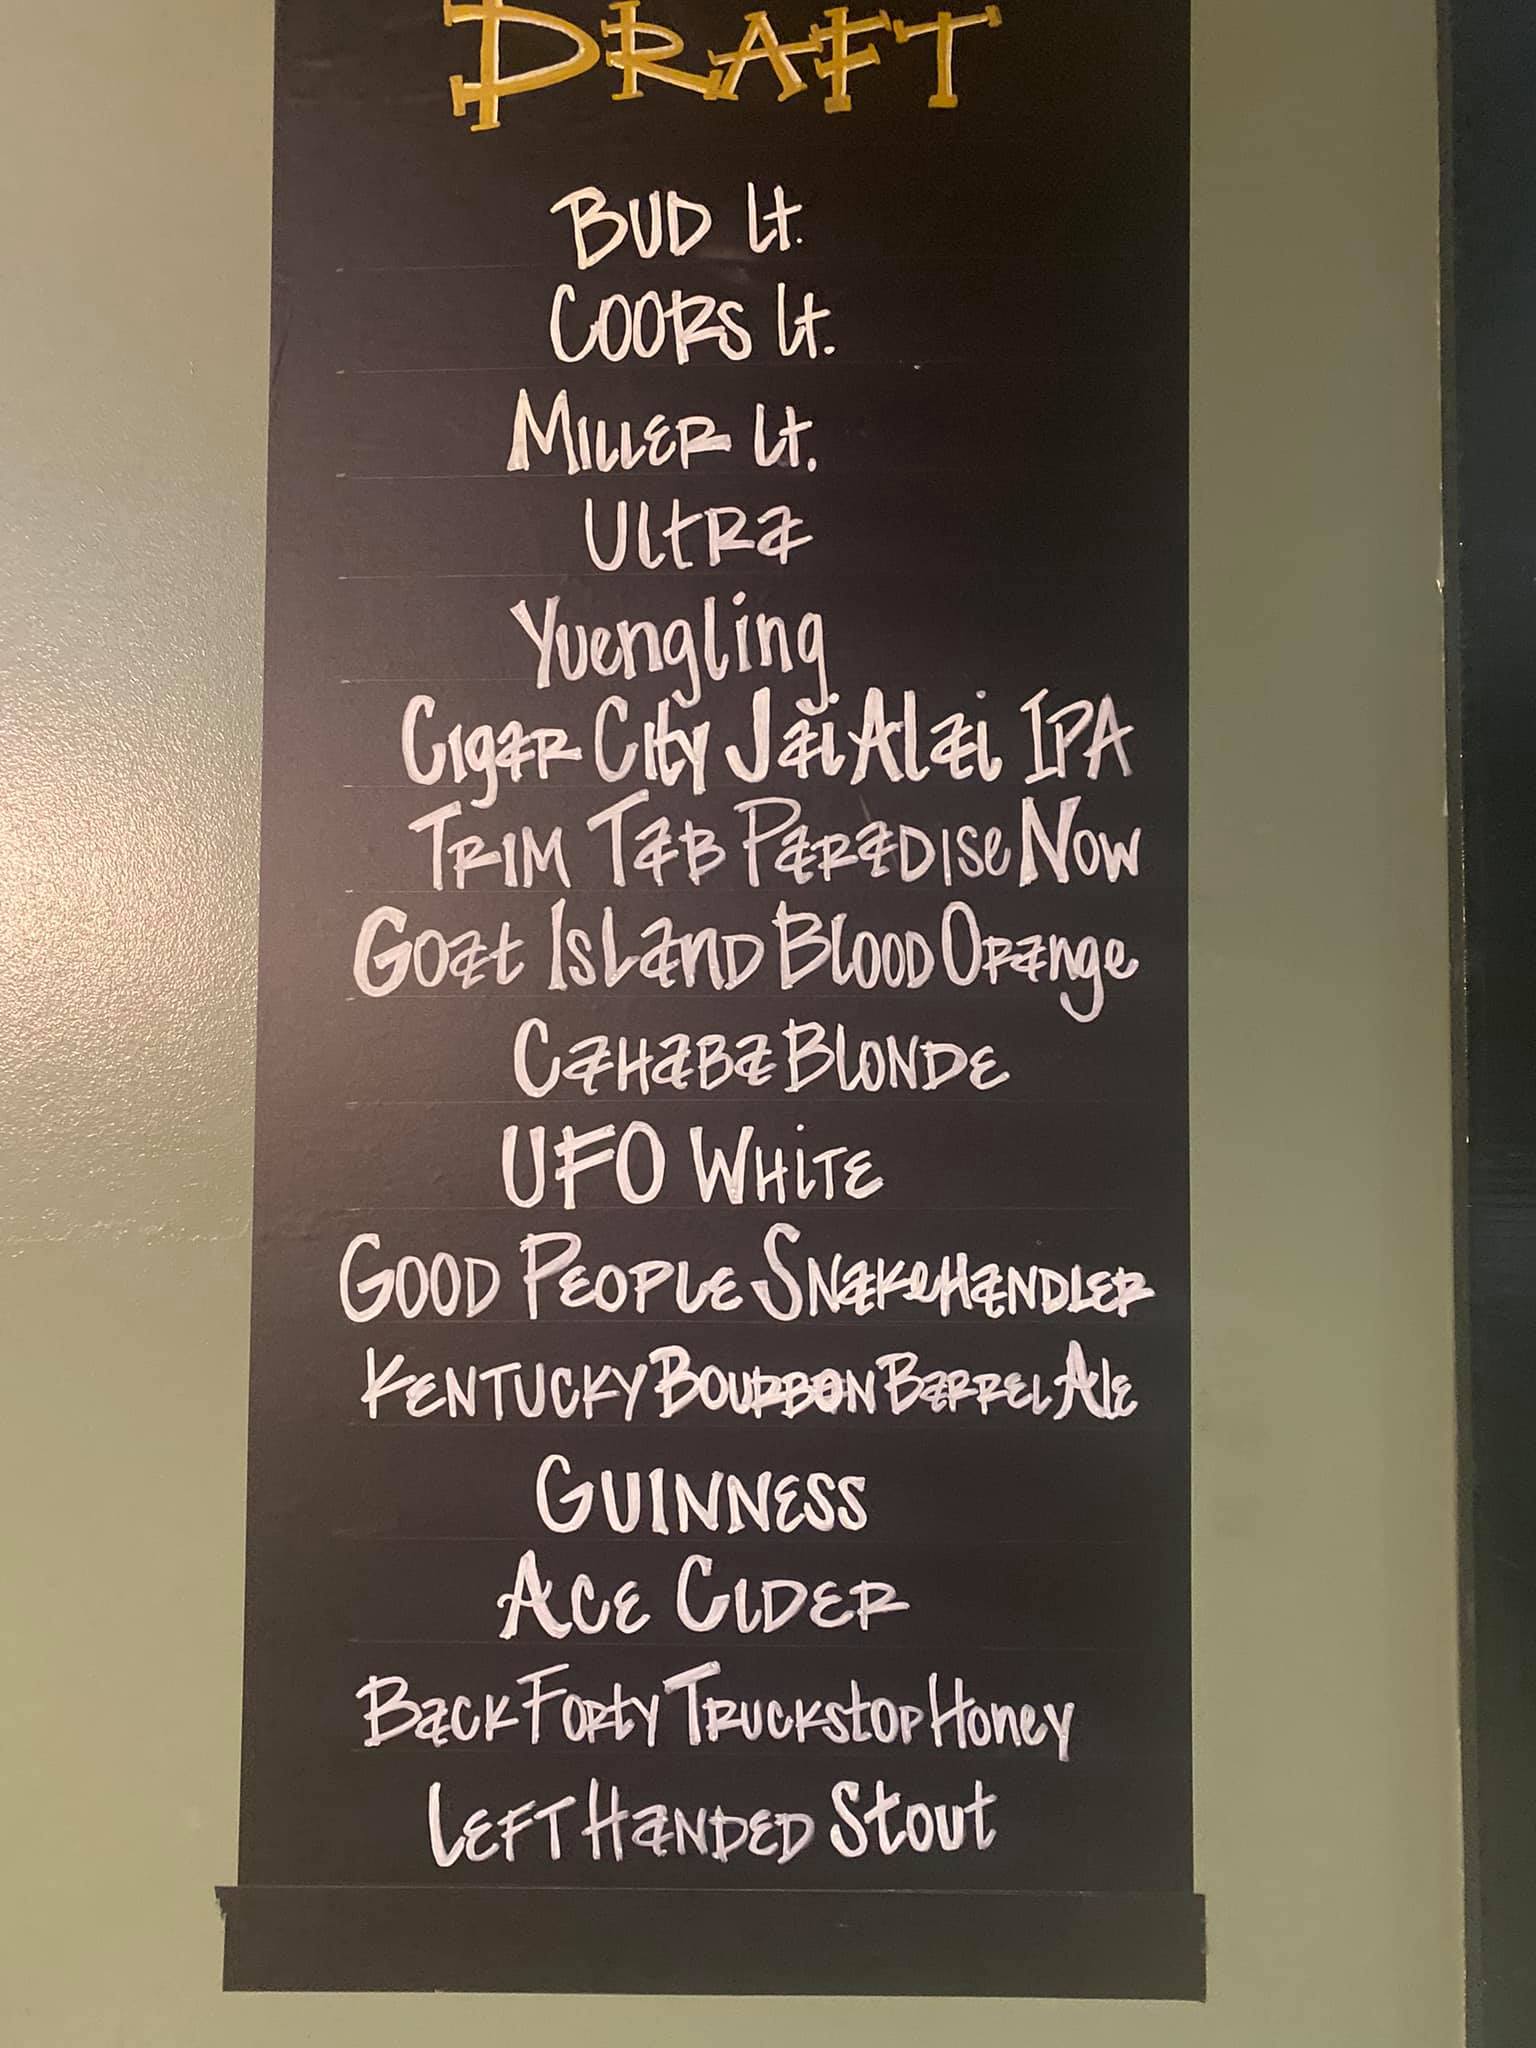 DRAFT
BUD Lt.
COORS Lt.
MILLER Lt.
ULtRa
Yuengling
Cigar City Jai Alai IPA
TRIM TaB PaRaDISe NOW
Goat IsLanD BLOOD ORange
CaHaBa BLONDE
UFO WHiTE
GOOD PEOPLE SNaKeHaNDLER
KENTUCKY BOURBON BaRREL ALE
GUINNESS
ACE CIDER
BaCK FORty TRUCKstOP Honey
LEFT HaNDED Stout